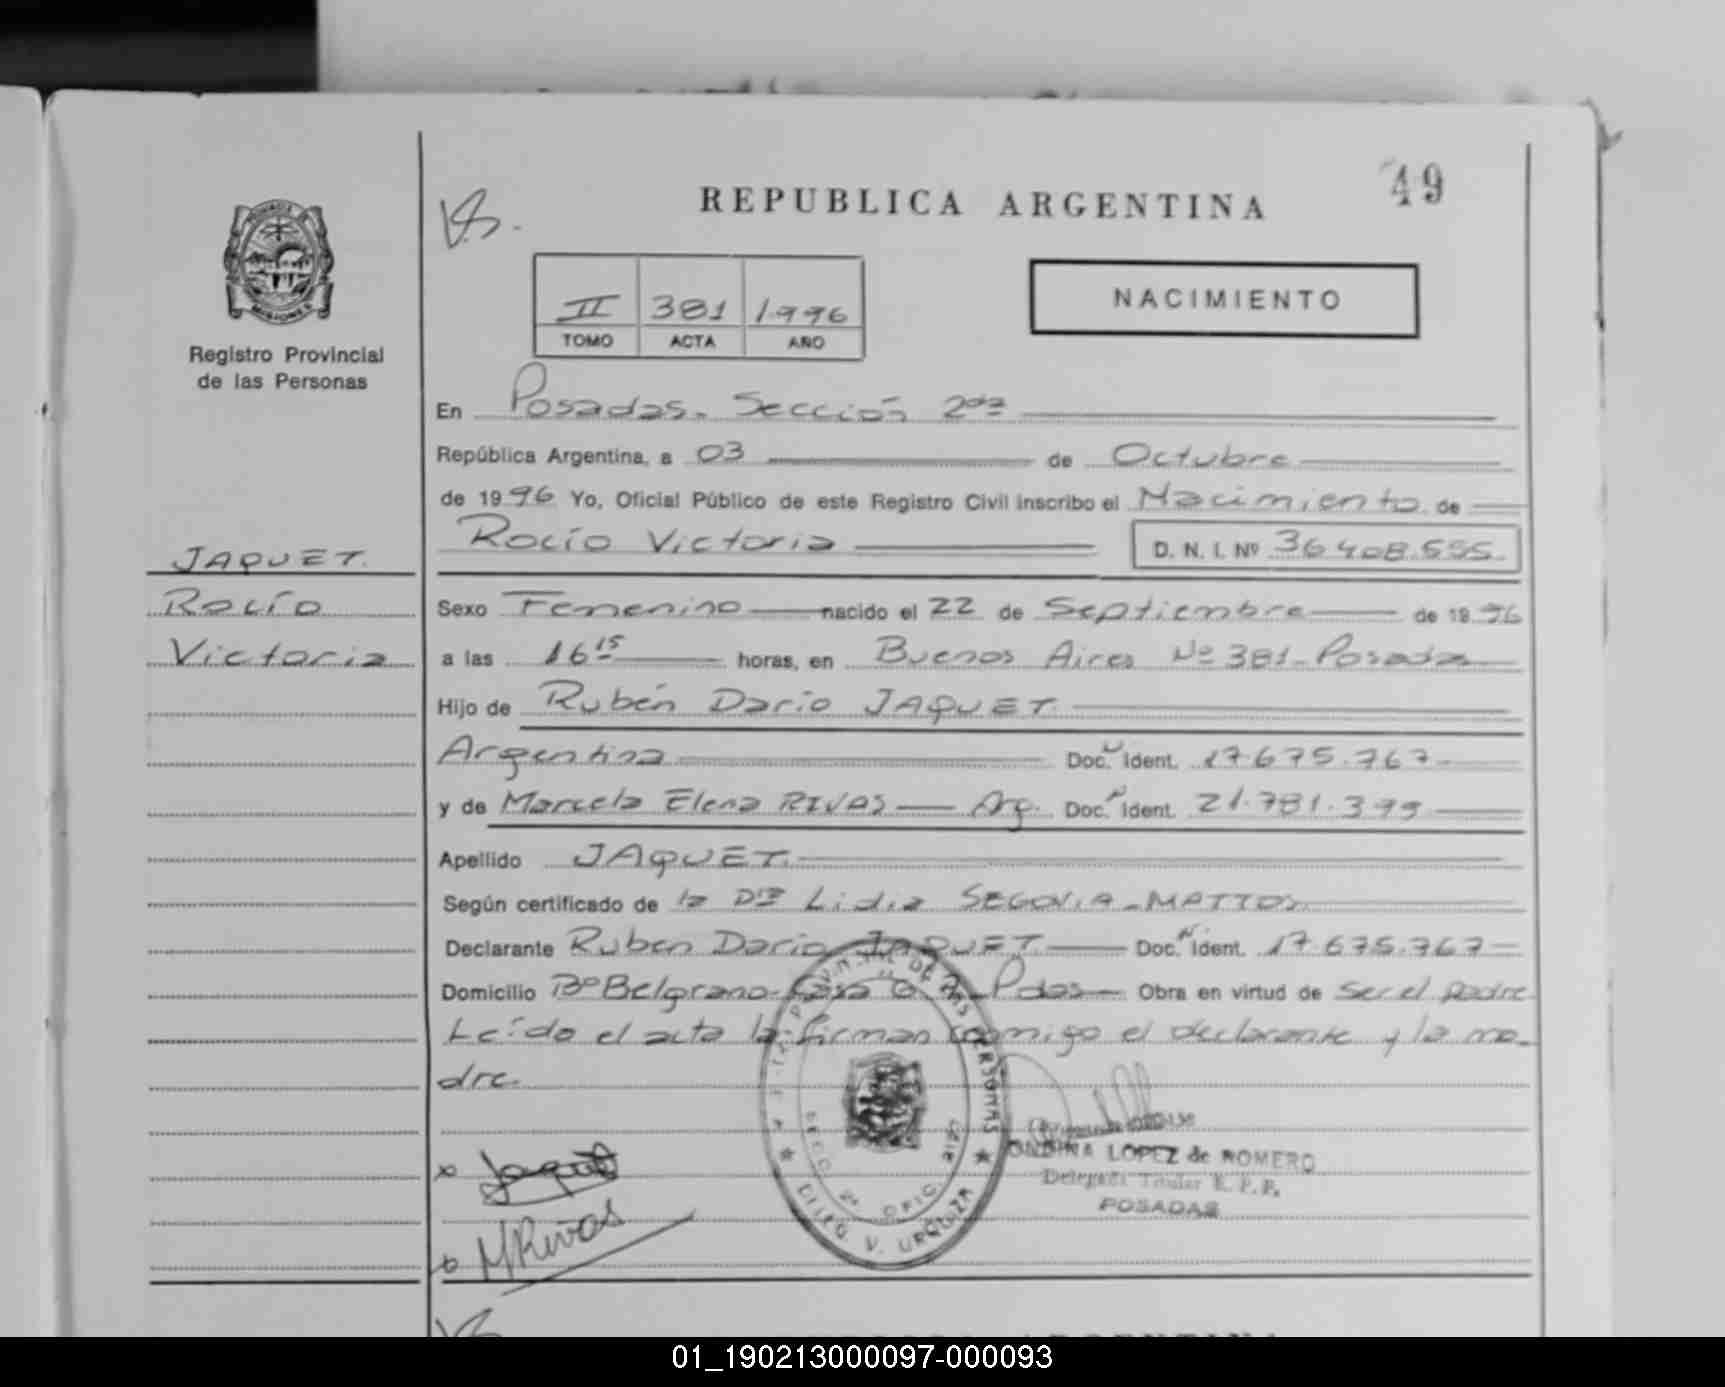 REPUBLICA ARGENTINA
49
PROVINCIA DE
MISIONES
Registro Provincial
de las Personas
II 381 1996
TOMO ACTA AÑO
NACIMIENTO
En Posadas. Sección 2da
República Argentina, a 03 de Octubre
de 1996 Yo, Oficial Público de este Registro Civil inscribo el Nacimiento de
Rocío Victoria D. N. I. Nº 36.408.555
JAQUET.
Rocío
Victoria
Sexo Femenino nacido el 22 de Septiembre de 1996
a las 16 15 horas, en Buenos Aires Nº 381 - Posadas
Hijo de Rubén Darío JAQUET.
Argentina Doc. N Ident. 17.675.767
y de Marcela Elena RIVAS Arg. Doc. N Ident. 21.781.399
Apellido JAQUET.
Según certificado de la Dra Lidia SEGOVIA - MATTOS
Declarante Ruben Dario JAQUET. Doc. N Ident. 17.675.767
Domicilio Bº Belgrano - Casa Pdas Obra en virtud de ser el padre
Leído el acta la firman conmigo el declarante y la ma-
dre.
x Jaquet
x MRivas
PROVINCIAL DE LAS PERSONAS
SECC. 2ª OFIC.
V. URQUIZA
ONDINA LOPEZ de ROMERO
Delegada Titular R. P. P.
POSADAS
01_190213000097-000093